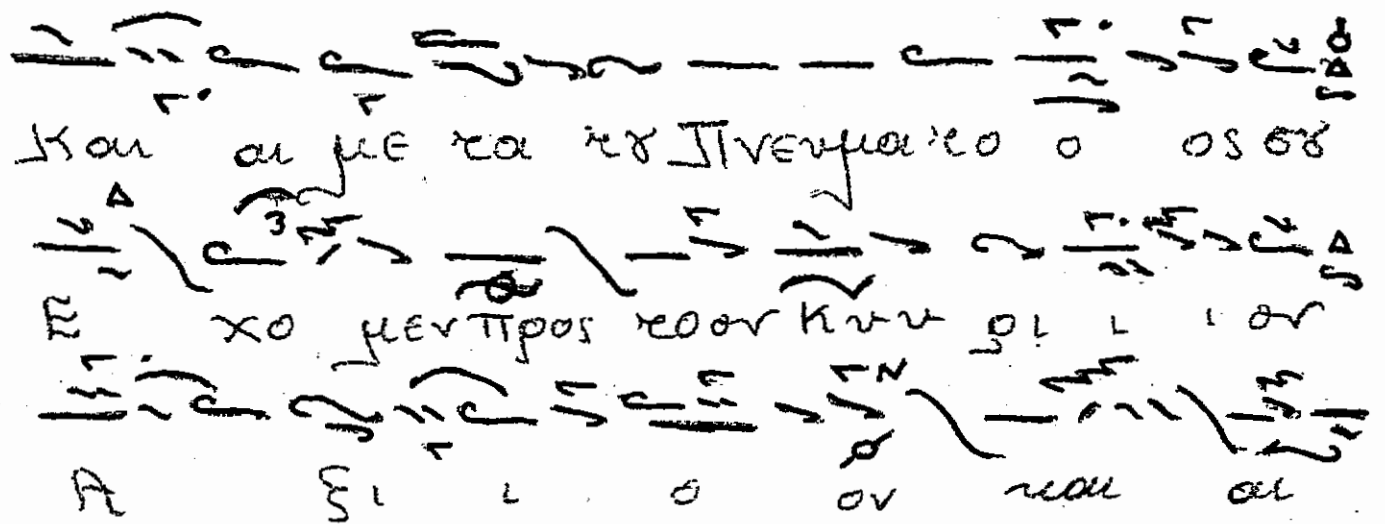 Και αι με τα τȣ Πνευμα το ο ος σȣ
Ε χο μεν προς το ον Κυυ ρι ι ι ον
Α ξι ι ο ον και αι